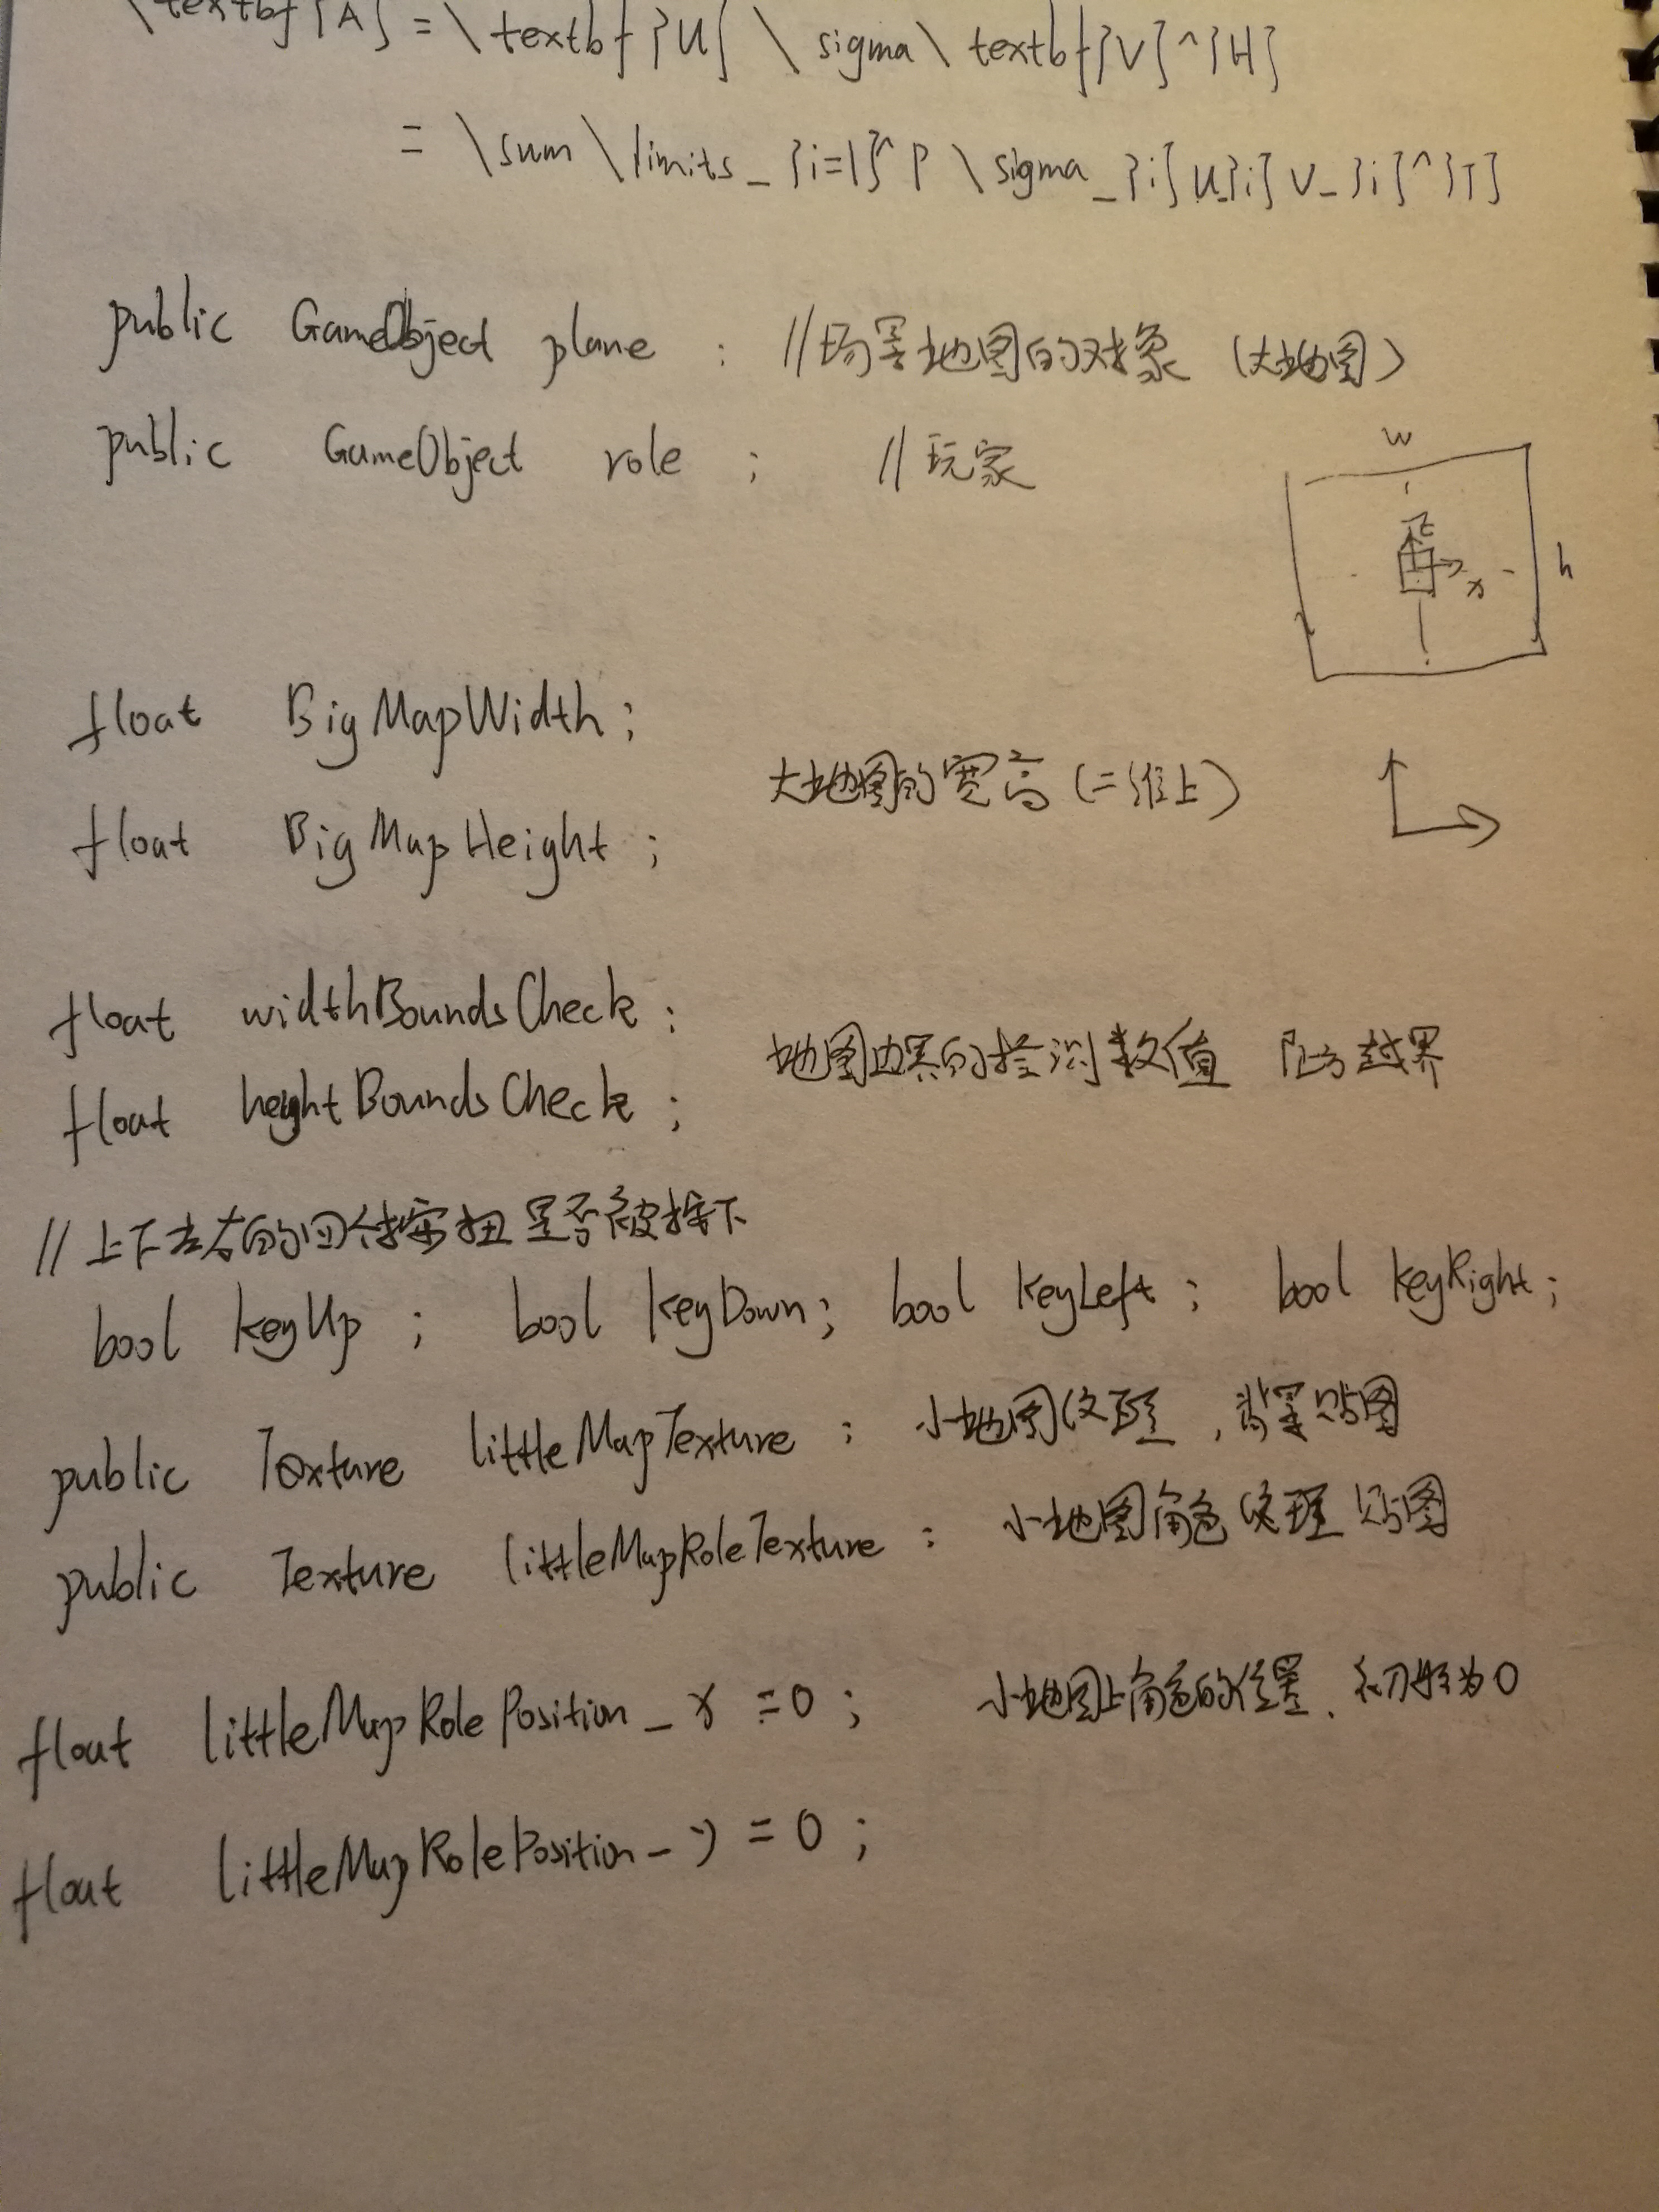 \textbf{A} = \textbf{U} \sigma\textbf{V}^{H}
= \sum\limits_{i=1}^P \sigma_{i}U_{i}V_{i}^{T}
public GameObject plane ; //场景地图的对象 (大地图)
public GameObject role ; //玩家
w
h
x
float BigMapWidth;
大地图的宽高 (二维上)
float BigMapHeight ;
float widthBoundsCheck ;
地图边界的检测数值 防越界
float heightBoundsCheck ;
// 上下左右的四个按扭 是否被按下
bool keyUp ; bool keyDown; bool keyLeft ; bool keyRight ;
public Texture littleMapTexture ; 小地图纹理 , 背景贴图
public Texture littleMapRoleTexture ; 小地图角色纹理 贴图
float littleMapRolePosition_x = 0 ; 小地图上角色的位置. 初始为0
float littleMapRolePosition_y = 0 ;